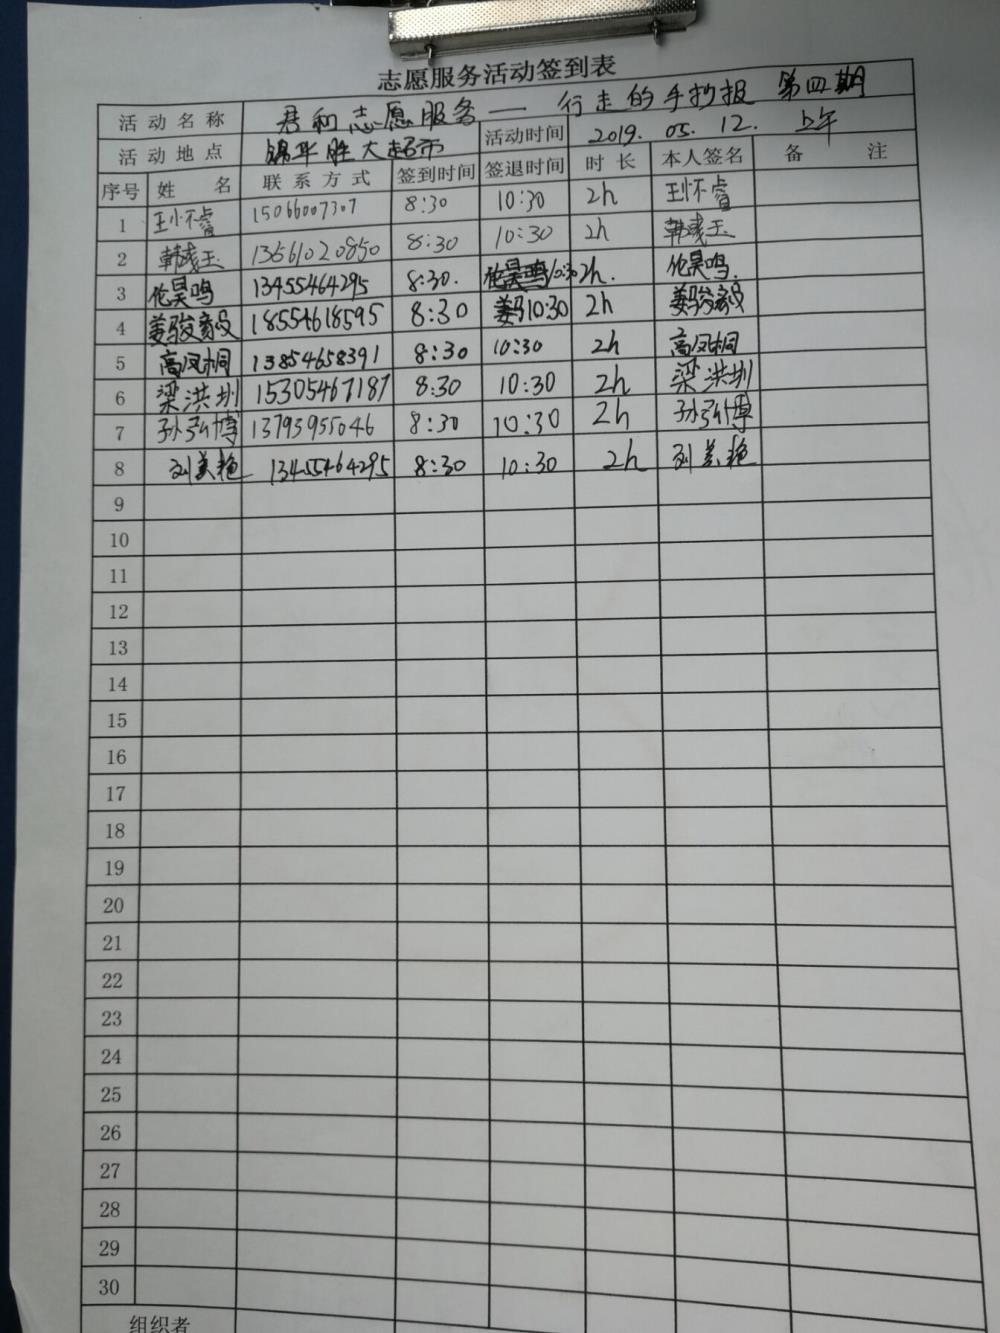 志愿服务活动签到表
活动名称 君和志愿服务——行走的手抄报 第四期
活动地点 锦华胜大超市 活动时间 2019.05.12. 上午
序号 姓名 联系方式 签到时间 签退时间 时长 本人签名 备注
1 王怀睿 15066007307 8:30 10:30 2h 王怀睿
2 韩彧玉 13561020850 8:30 10:30 2h 韩彧玉
3 伦昊鸣 13455464295 8:30. 10:30 2h. 伦昊鸣.
4 姜骏毅 18554618595 8:30 10:30 2h 姜骏毅
5 高凤桐 13854658391 8:30 10:30 2h 高凤桐
6 梁洪圳 15305467187 8:30 10:30 2h 梁洪圳
7 孙弘博 13793955046 8:30 10:30 2h 孙弘博
8 刘美艳 13455464295 8:30 10:30 2h 刘美艳
9
10
11
12
13
14
15
16
17
18
19
20
21
22
23
24
25
26
27
28
29
30
组织者